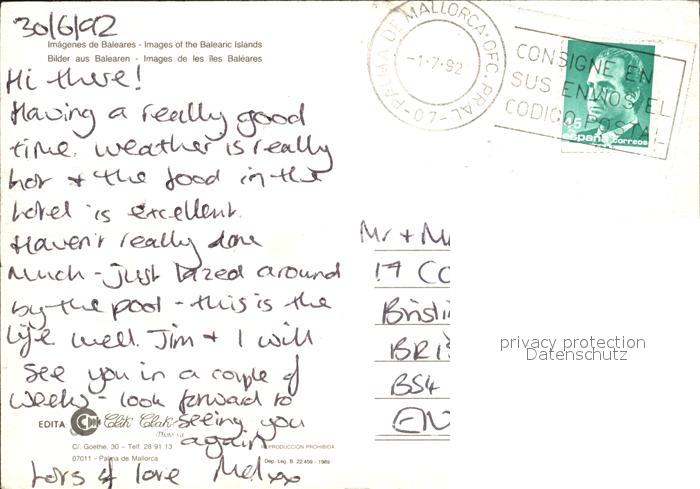 30/6/92
Imágenes de Baleares - Images of the Balearic Islands
Bilder aus Balearen - Images de les îles Baléares
Hi there!
Having a really good
time. Weather is really
hot + the food in the
hotel is excellent.
Haven't really done
much - just lazed around
by the pool - this is the
life well. Jim + I will
see you in a couple of
weeks - look forward to
seeing you
again
Lots of love Mel xx
EDITA Clik Clak
C/. Goethe, 30 - Telf. 28 91 13
07011 - Palma de Mallorca
REPRODUCCION PROHIBIDA
Dep. Leg. B. 22.459 - 1989
PALMA DE MALLORCA·OFC. PRAL
-1·7·92
-07-
CONSIGNE EN
SUS ENVIOS EL
CODIGO POSTAL
españa correos
Mr + M
17 CO
Brisli
BRIS
BS4
EN
privacy protection
Datenschutz